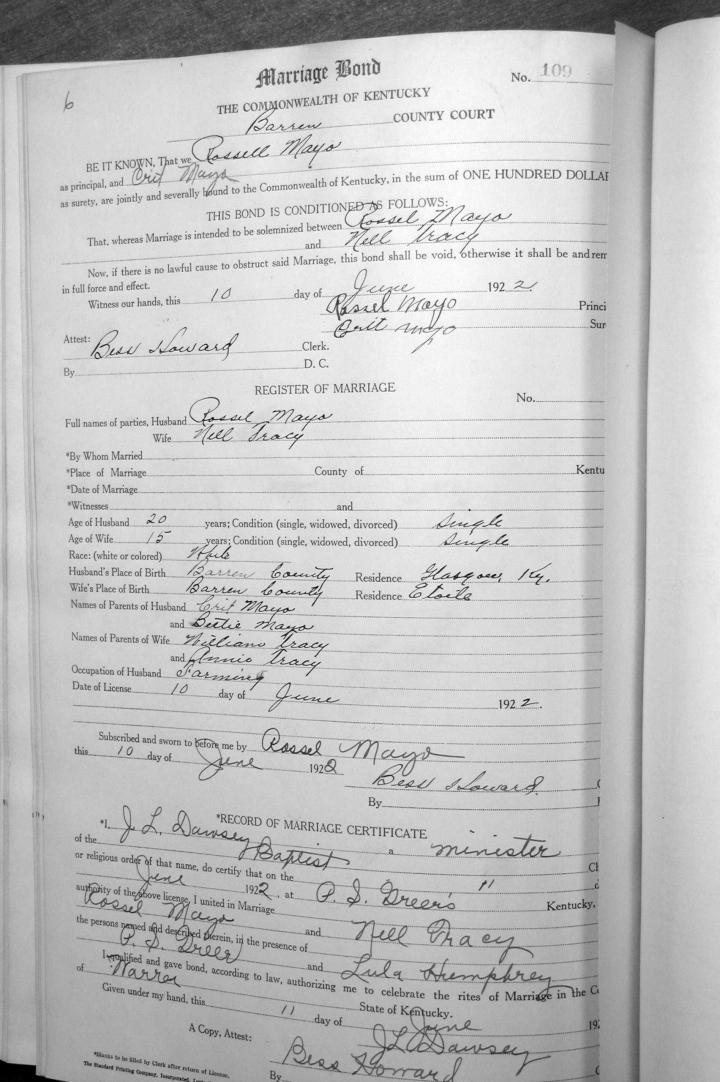 6
Marriage Bond
No. 109
THE COMMONWEALTH OF KENTUCKY
Barren COUNTY COURT
BE IT KNOWN, That we Rossell Mayo
as principal, and Crit Mayo
as surety, are jointly and severally bound to the Commonwealth of Kentucky, in the sum of ONE HUNDRED DOLLAR
THIS BOND IS CONDITIONED AS FOLLOWS:
That, whereas Marriage is intended to be solemnized between Rossel Mayo
and Nell Tracy
Now, if there is no lawful cause to obstruct said Marriage, this bond shall be void, otherwise it shall be and rem
in full force and effect.
Witness our hands, this 10 day of June 1922.
Rossel Mayo Princi
Crit Mayo Sur
Attest: Bess Howard Clerk.
By D. C.
REGISTER OF MARRIAGE
No.
Full names of parties, Husband Rossel Mayo
Wife Nell Tracy
*By Whom Married
*Place of Marriage County of Kentu
*Date of Marriage
*Witnesses and
Age of Husband 20 years; Condition (single, widowed, divorced) Single
Age of Wife 15 years; Condition (single, widowed, divorced) Single
Race: (white or colored) White
Husband's Place of Birth Barren County Residence Glasgow, Ky.
Wife's Place of Birth Barren County Residence Etoile
Names of Parents of Husband Crit Mayo
and Bettie Mayo
Names of Parents of Wife William Tracy
and Annie Tracy
Occupation of Husband Farming
Date of License 10 day of June 1922.
Subscribed and sworn to before me by Rossel Mayo
this 10 day of June 1922
Bess Howard.
By
*RECORD OF MARRIAGE CERTIFICATE
*I, J. L. Dawsey a minister
of the Baptist Ch
or religious order of that name, do certify that on the 11 d
June 1922, at P. S. Greer's Kentucky,
authority of the above license, I united in Marriage
Rossel Mayo and Nell Tracy
the persons named and described therein, in the presence of
P. S. Greer and Lula Humphrey
I qualified and gave bond, according to law, authorizing me to celebrate the rites of Marriage in the Co
of Warren State of Kentucky.
Given under my hand, this 11 day of June 192
J L Dawsey
A Copy, Attest: Bess Howard C
By
*Blanks to be filled by Clerk after return of License.
The Standard Printing Company, Incorporated,